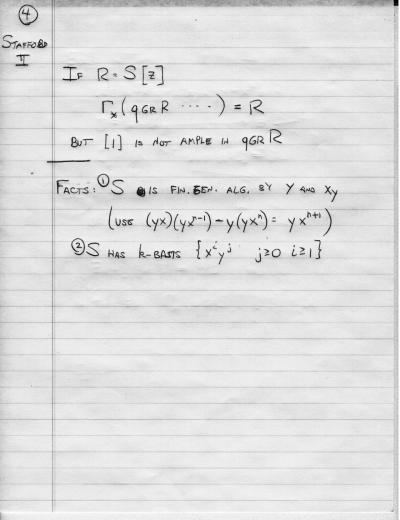 ④
STAFFORD
II
IF R = S[z]
Γ* (qGR R ....) = R
BUT [1] IS NOT AMPLE IN qGR R
FACTS: ① S IS FIN. GEN. ALG. BY y AND xy
(USE (yx)(yx^{n-1}) - y(yx^n) = yx^{n+1})
② S HAS k-BASIS {x^i y^j j≥0 i≥1}